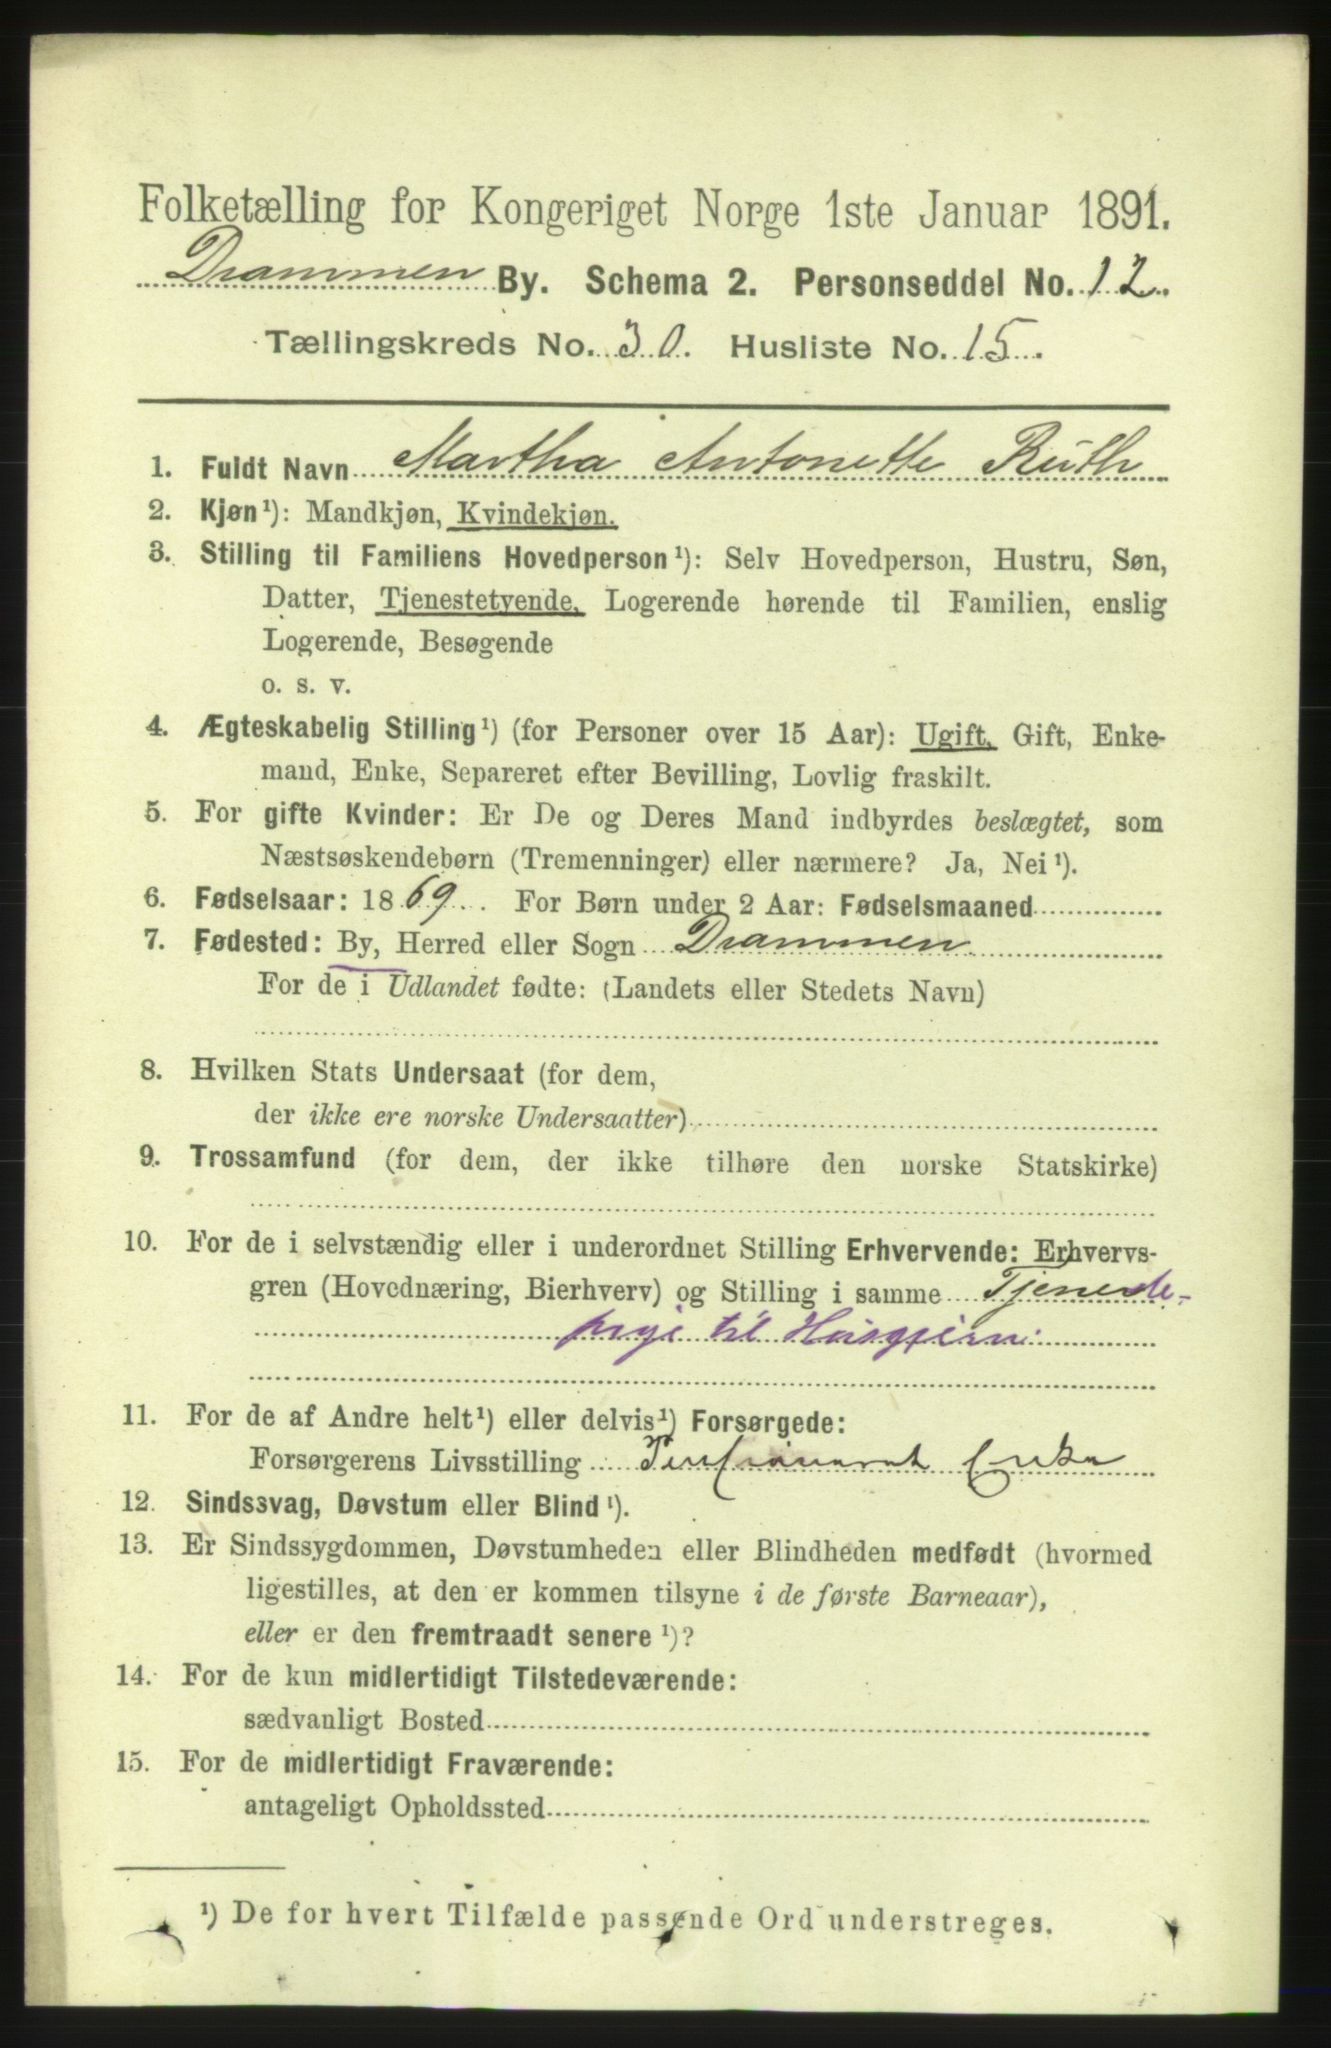 Folketælling for Kongeriget Norge 1ste Januar 1891.
Drammen By. Schema 2. Personseddel No. 12.
Tællingskreds No. 30. Husliste No. 15.
1. Fuldt Navn Martha Antonette Ruth
2. Kjøn¹): Mandkjøn, Kvindekjøn.
3. Stilling til Familiens Hovedperson¹): Selv Hovedperson, Hustru, Søn,
Datter, Tjenestetyende, Logerende hørende til Familien, enslig
Logerende, Besøgende
o. s. v.
4. Ægteskabelig Stilling¹) (for Personer over 15 Aar): Ugift, Gift, Enke-
mand, Enke, Separeret efter Bevilling, Lovlig fraskilt.
5. For gifte Kvinder: Er De og Deres Mand indbyrdes beslægtet, som
Næstsøskendebørn (Tremenninger) eller nærmere? Ja, Nei¹).
6. Fødselsaar: 1869. For Børn under 2 Aar: Fødselsmaaned
7. Fødested: By, Herred eller Sogn Drammen
For de i Udlandet fødte: (Landets eller Stedets Navn)
8. Hvilken Stats Undersaat (for dem,
der ikke ere norske Undersaatter)
9. Trossamfund (for dem, der ikke tilhøre den norske Statskirke)
10. For de i selvstændig eller i underordnet Stilling Erhvervende: Erhvervs-
gren (Hovednæring, Bierhverv) og Stilling i samme Tjeneste-
pige til Husgjern:
11. For de af Andre helt¹) eller delvis¹) Forsørgede:
Forsørgerens Livsstilling Enke
12. Sindssvag, Døvstum eller Blind¹).
13. Er Sindssygdommen, Døvstumheden eller Blindheden medfødt (hvormed
ligestilles, at den er kommen tilsyne i de første Barneaar),
eller er den fremtraadt senere¹)?
14. For de kun midlertidigt Tilstedeværende:
sædvanligt Bosted
15. For de midlertidigt Fraværende:
antageligt Opholdssted
¹) De for hvert Tilfælde passende Ord understreges.